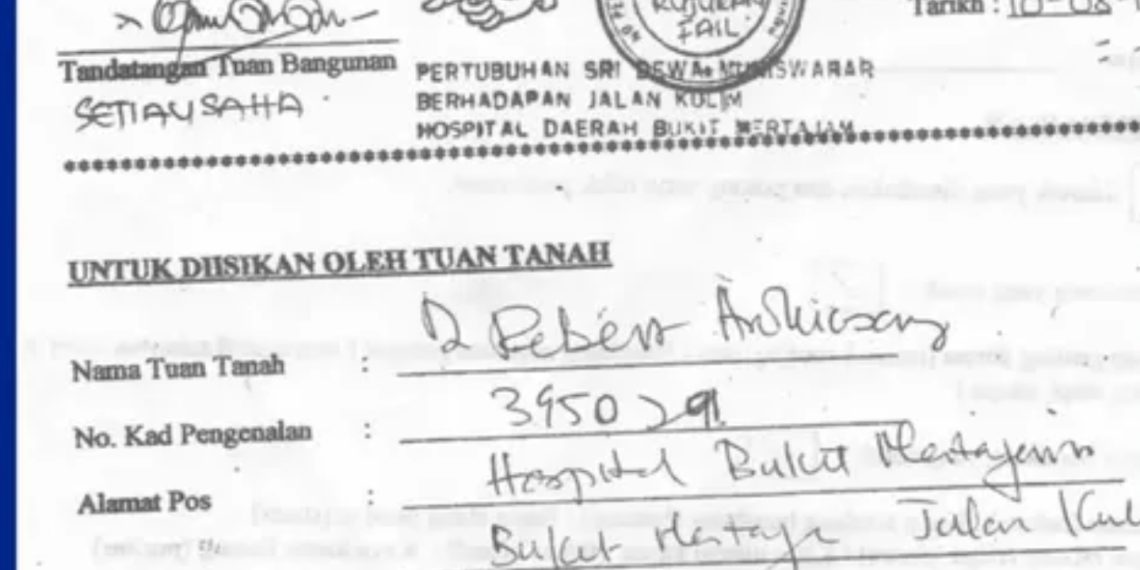 RUJUKAN
FAIL
Tarikh : 10-08-
Tandatangan Tuan Bangunan
SETIAUSAHA
PERTUBUHAN SRI DEWA MUNISWARAR
BERHADAPAN JALAN KULIM
HOSPITAL DAERAH BUKIT MERTAJAM
UNTUK DIISIKAN OLEH TUAN TANAH
Nama Tuan Tanah : D Robert
No. Kad Pengenalan : 3950291
Alamat Pos : Hospital Bukit Mertajam
Bukit Mertaja Jalan Kul